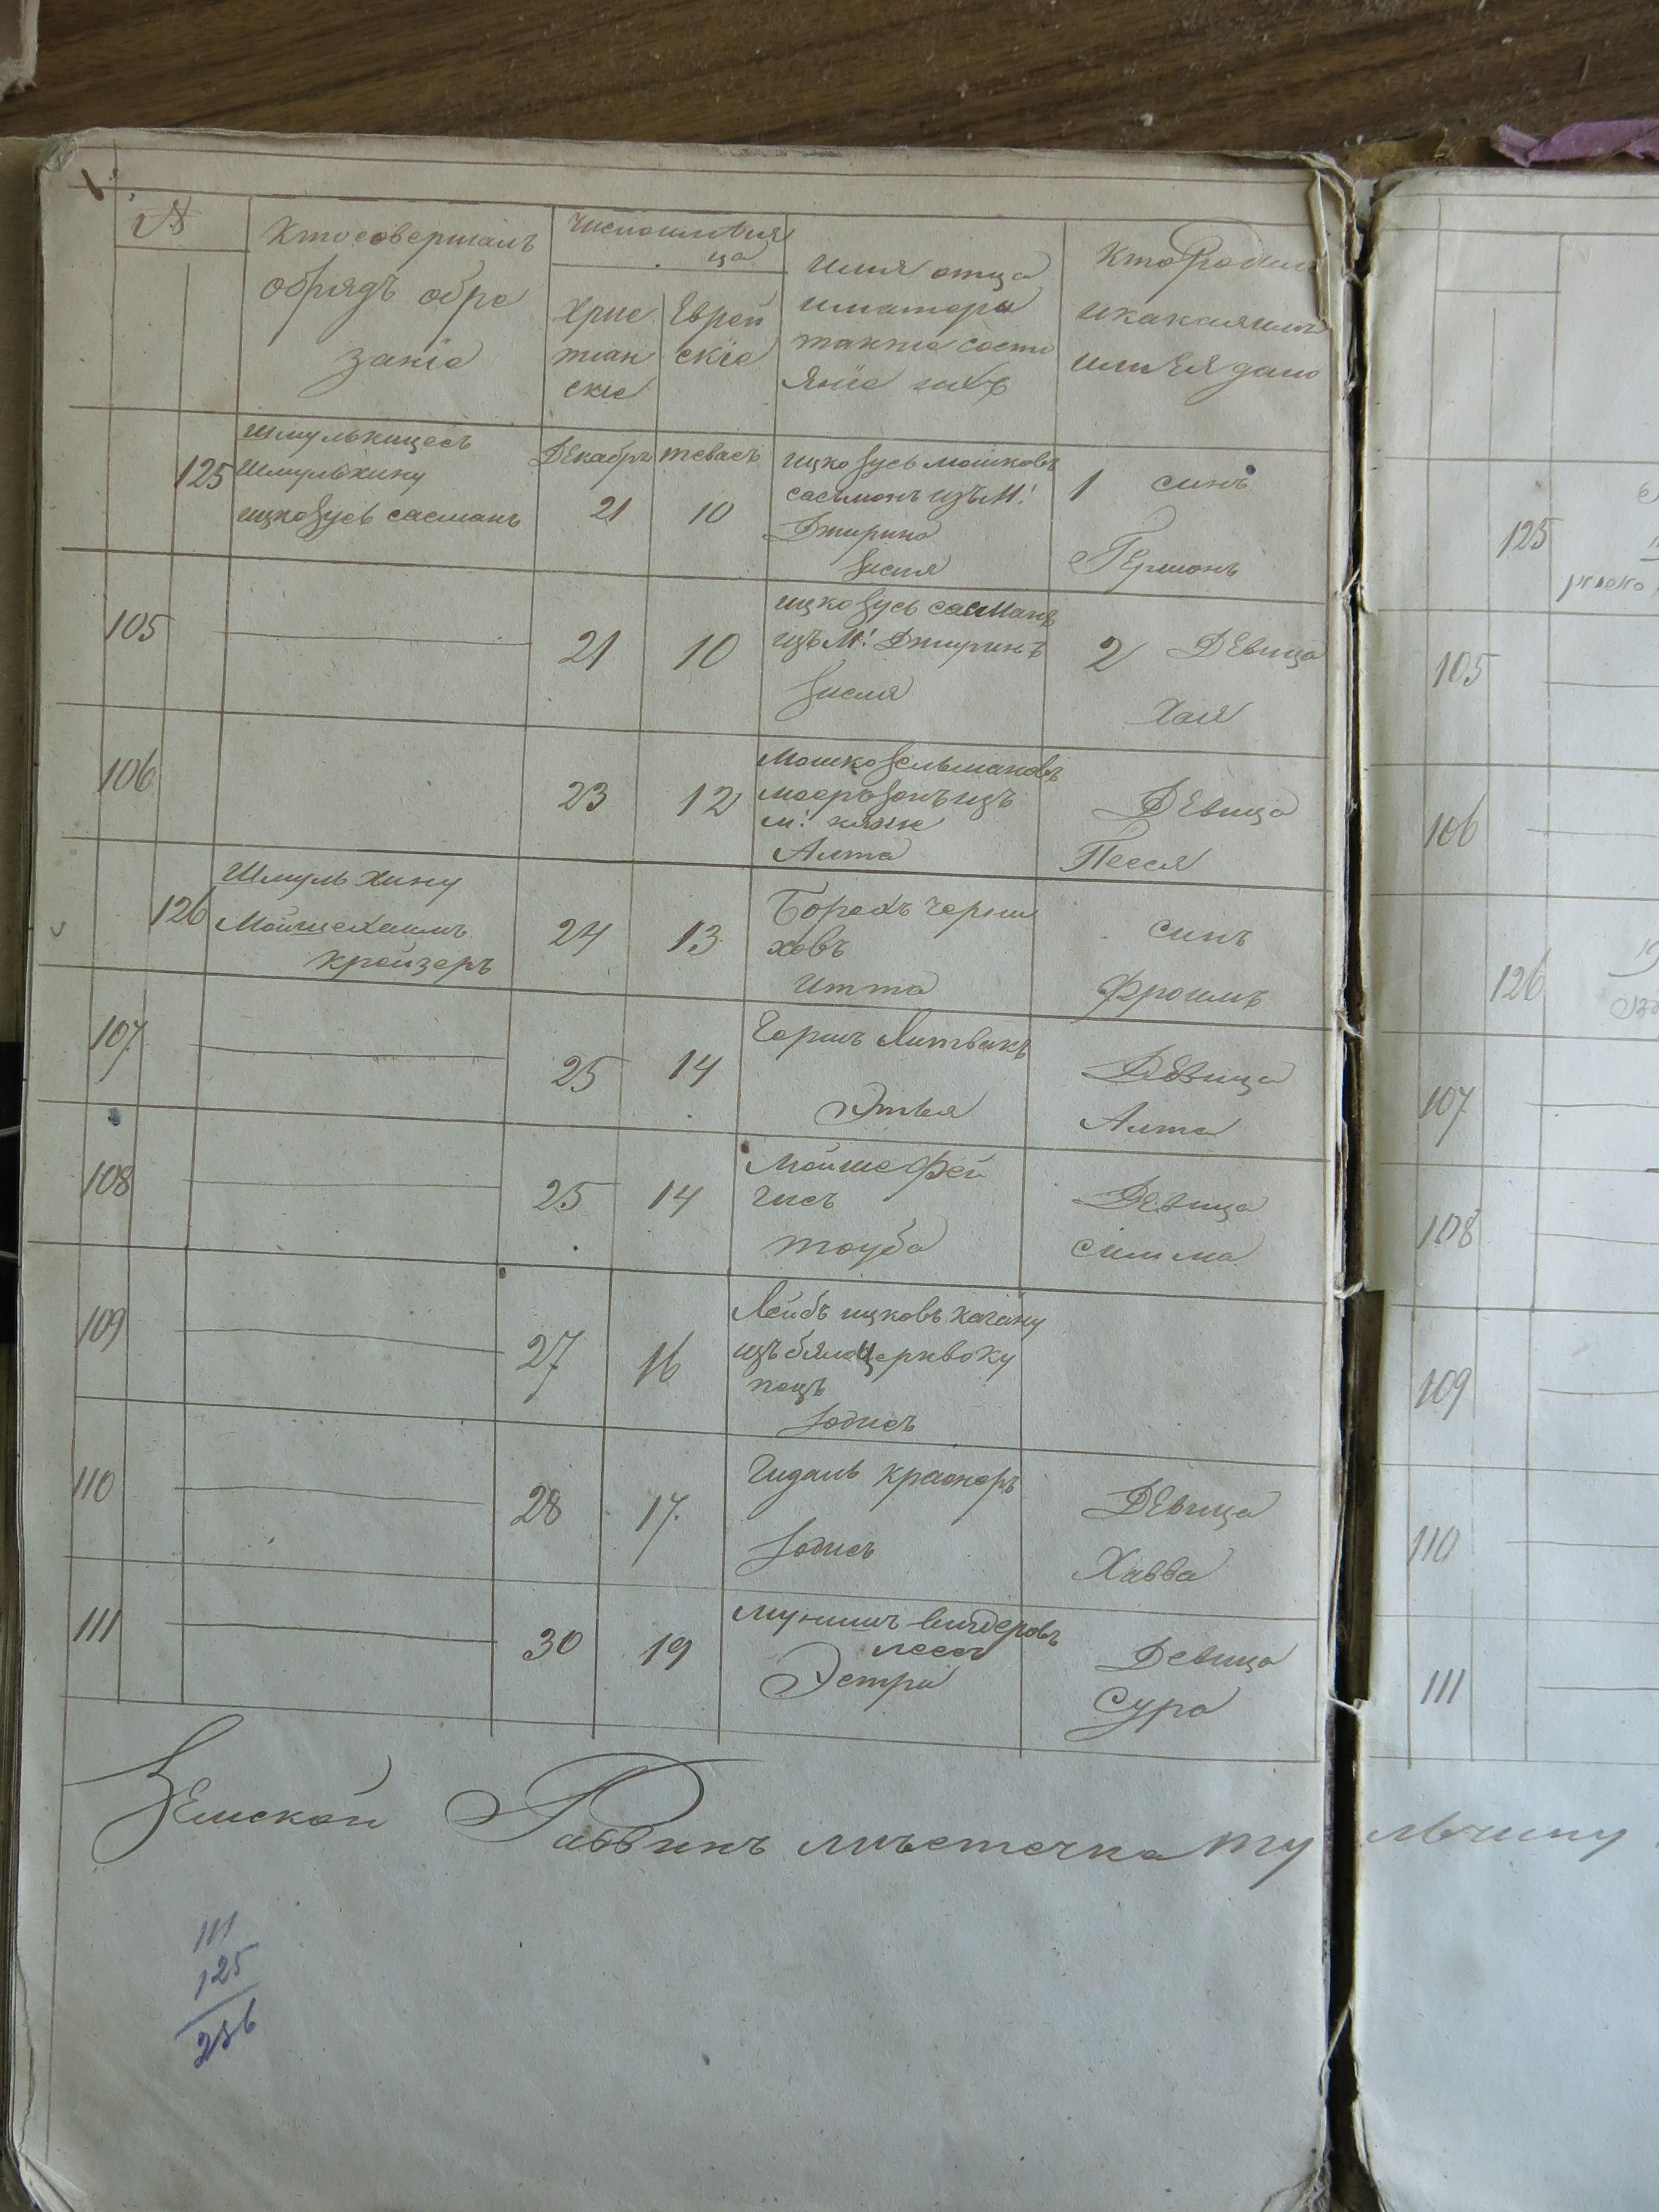 №
Кто совершалъ
обрядъ обре
заніе
Число и мѣся
ца
Хрис
тиан
скіе
Еврей
скіе
имя отца
и матери
такте состо
яніе ихъ
Кто Родил
и какая или
имя Ея дано
125
Шмуль
Шмуль хину
ицко Зусь сасманъ
Декабръ
21
тевасъ
10
ицко Зусь мошковъ
сасьмонъ изъ М:
Джурина
Зисля
1 синъ
Гершонъ
105
21
10
ицко Зусь сасманъ
изъ М: Джуринъ
Зисля
2 Девица
Хая
106
23
12
Мошко Зельмановъ
изъ
м: княже
Алта
Девица
Песся
126
Шмуль хину
Мойше Хаимъ
Крейзеръ
24
13
Борохъ черни
ховъ
итта
синъ
Фроимъ
107
25
14
Гершъ Литвакъ
Этья
Девица
Алта
108
25
14
Мойше Фей
гисъ
тоуба
Девица
симма
109
27
16
Лейбъ ицковъ кагану
изъ бялоцеркво ку
пецъ
Зодисъ
110
28
17
Гидаль краснеръ
Зодисъ
Девица
Хавва
111
30
19
мунишъ
Эстри
Девица
Сура
Земской Раввинъ мъстечка ту льчину
111
125
236
125
105
106
126
107
108
109
110
111